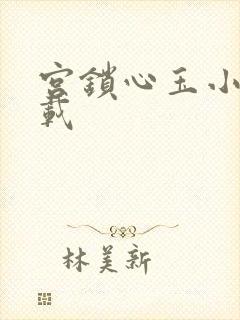 宮鎖心玉小
載
林美新